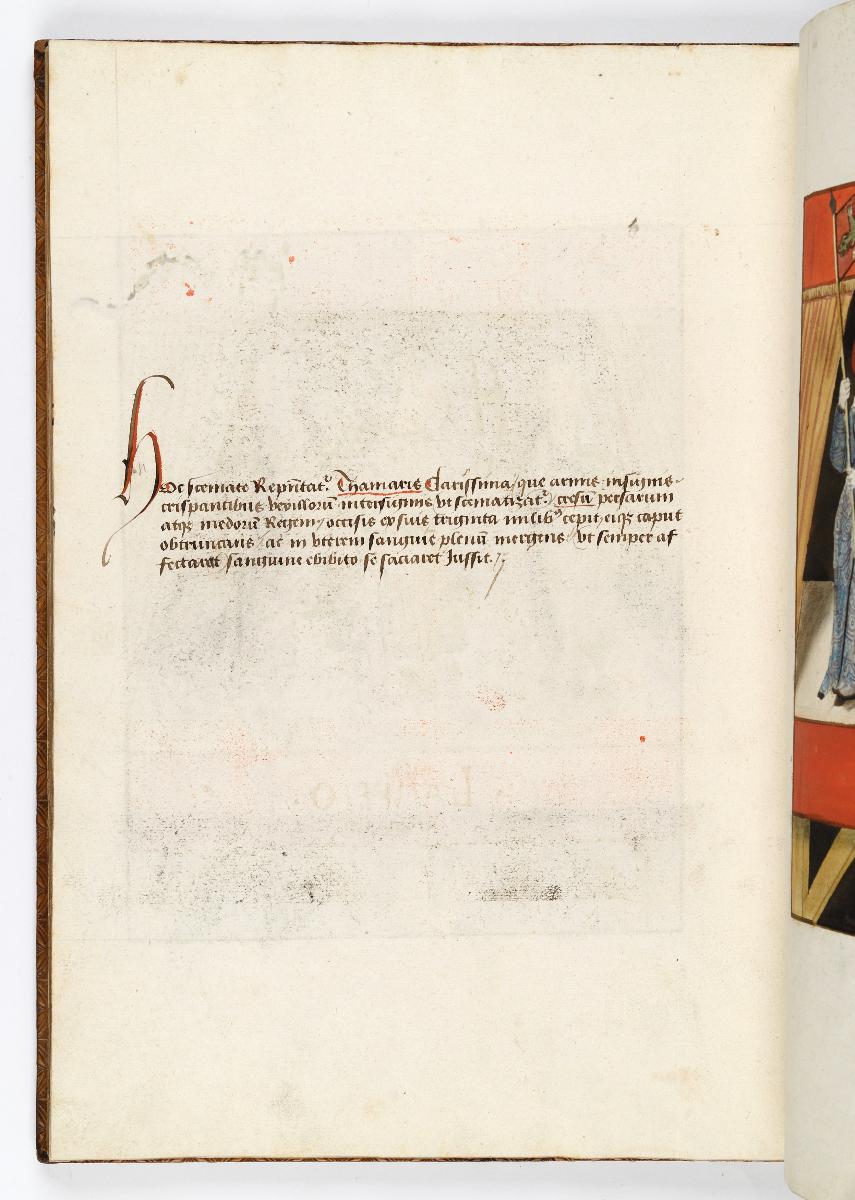 hOc scemate Rep̄ntatꝰ. Thamaris Clarissima, que armis insignis
crispantibus vexillorū intersignis vt scematizatꝰ, cresū persarum
atqꝫ medorū Regem, occisis ex suis triginta milibꝰ cepit, eiqꝫ caput
obtruncans, ac in vterem sanguie plenū mergens, vt semper af
fectarat sanguine ebibito se saciaret Jussit.